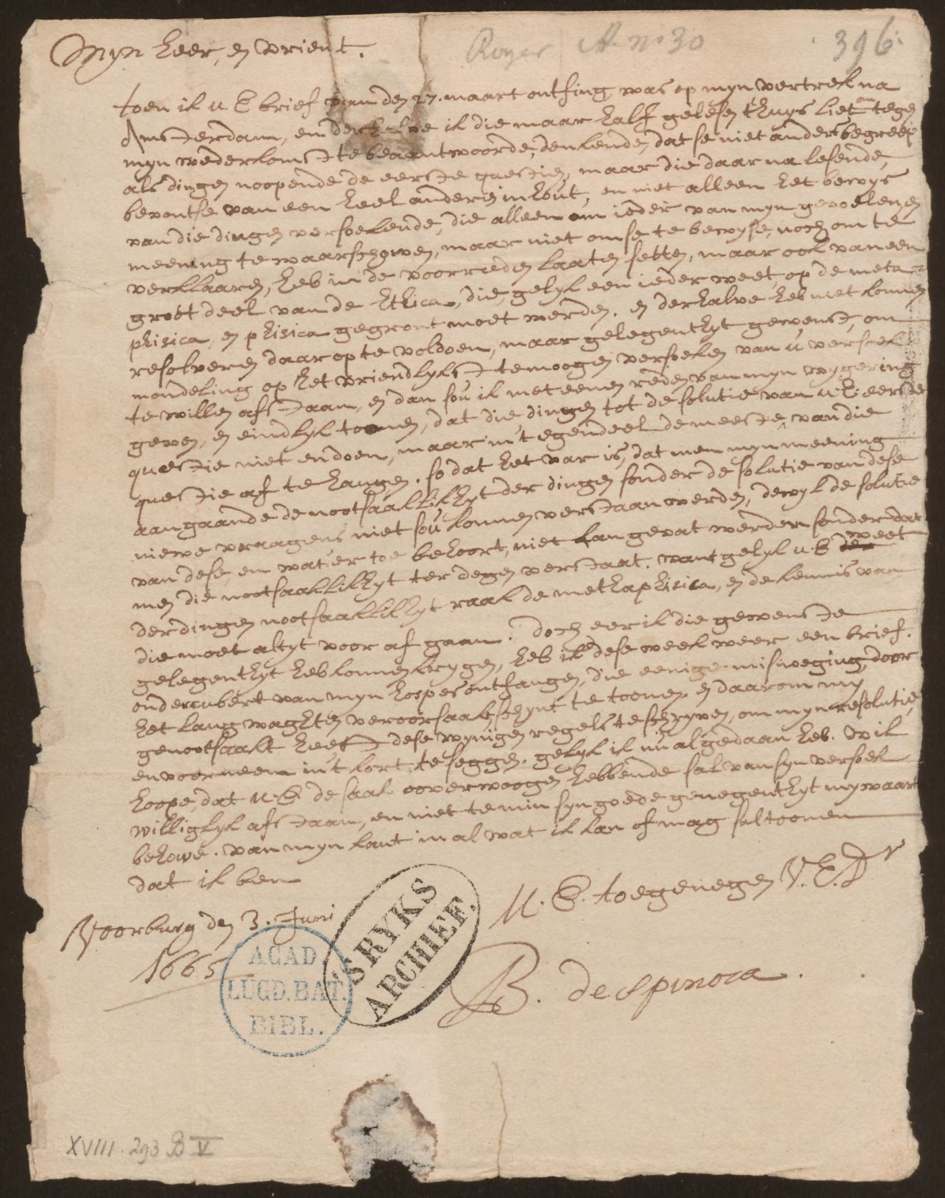 Royer A. no 30 396.
Myn Heer, en vrient.
toen ik u E brief van den 27. maart ontfing was op myn vertrek na
Amsterdam, en derhalve ik die maar half gelesen t'huys liet om tege
myn wederkomst te beaantwoorde, denkende dat se niet anders begreep
als dingen noopende de eerste questie, maar die daar na lesende,
bevont se van een heel anderen inhout, en niet alleen het bewys
van die dingen versoekende, die alleen om ieder van myn gevoelen en
meening te waarschowen, maar niet om se te bewyse, noch om te
verklaaren, heb in de voorreden laaten setten, maar ook van een
groot deel van de Ethica, die, gelyk een ieder weet op de meta-
phisica, en phisica gegront moet werden. en derhalve heb niet konnen
resolveren daar op te voldoen, maar gelegentheyt gewenst, om
mondeling op het vriendlykst te moogen versoeken van u versoek
te willen afstaan, en dan sou ik met eenen reden van myn wygering
geven, en eindlyk toonen, dat die dingen tot de solutie van u E eerste
questie niet en doen, maar in't egendeel de meeste, van die
questie af te hangen. so dat het var is, dat men myn meening
aangaande de nootsaaklikheyt der dingen sonder de solutie van dese
niewe vraagens niet sou konnen verstaan werden, dewyl de solutie
van dese, en wat er toe behoort, niet kan gevat werden sonder dat
men die nootsaaklikheyt ter degen verstaat. want gelyk u E weet
der dingen nootsaaklikheyt raak de methaphisica, en de kennis van
die moet altyt voor af gaan. doch eer ik die gewenste
gelegentheyt heb konnen krygen, heb ik dese week weer een brief
onder cubert van myn hospes ontfangen, die eenige misnoeging door
het lang waghten veroorsaakt, schynt te toonen, en daarom my
genootsaakt heeft dese wynigen regels te schryven, om myn resolutie,
en voorneem in't kort, te seggen. gelyk ik nu al gedaan heb. Wil
hoope, dat u. E. de saak overwoogen hebbende sal van syn versoek
williglyk afstaan, en niet te min syn goede genegentheyt mywaart
behowe. van myn kant in al wat ik kan of mag sal toonen
dat ik ben
U. E. toegenegen V. E. Dr
Voorburg den 3. Juni
1665
B. de Spinoza.
'S RYKS
ARCHIEF.
ACAD.
LUGD. BAT.
BIBL.
XVIII. 293 B V